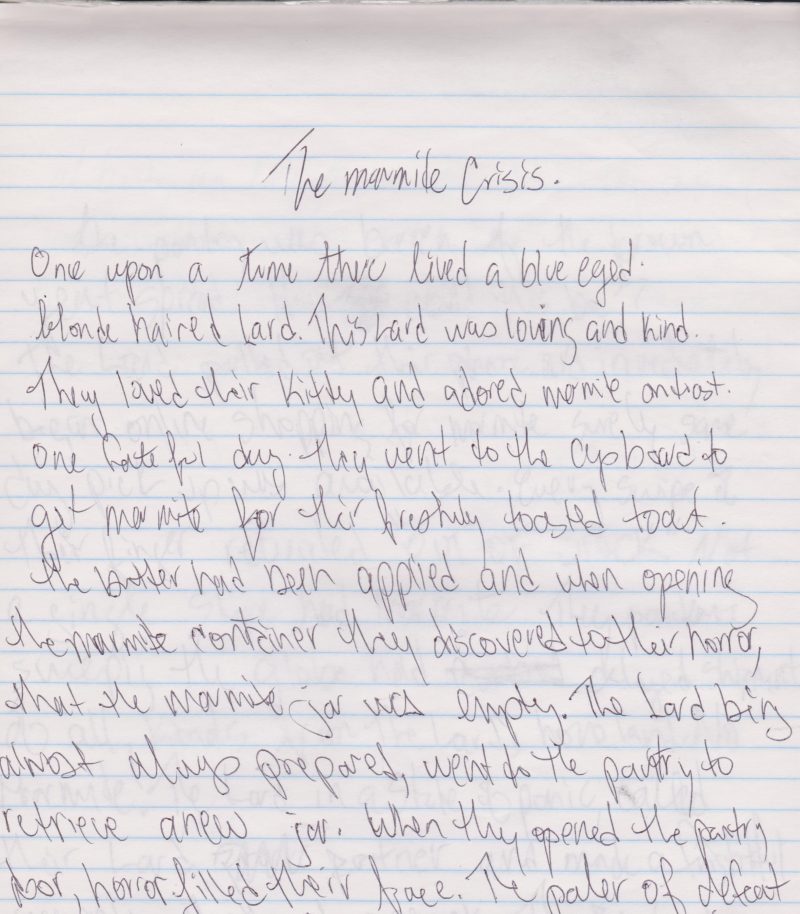 The marmite Crisis.
One upon a time there lived a blue eyed
blonde haired Lard. This Lard was loving and kind.
They loved their kitty and adored marmite on toast.
One fateful day they went to the cupboard to
get marmite for their freshly toasted toast.
The butter had been applied and when opening
the marmite container they discovered to their horror,
that the marmite jar was empty. The Lard being
almost always prepared, went to the pantry to
retrieve a new jar. When they opened the pantry
door, horror filled their face. The paler of defeat